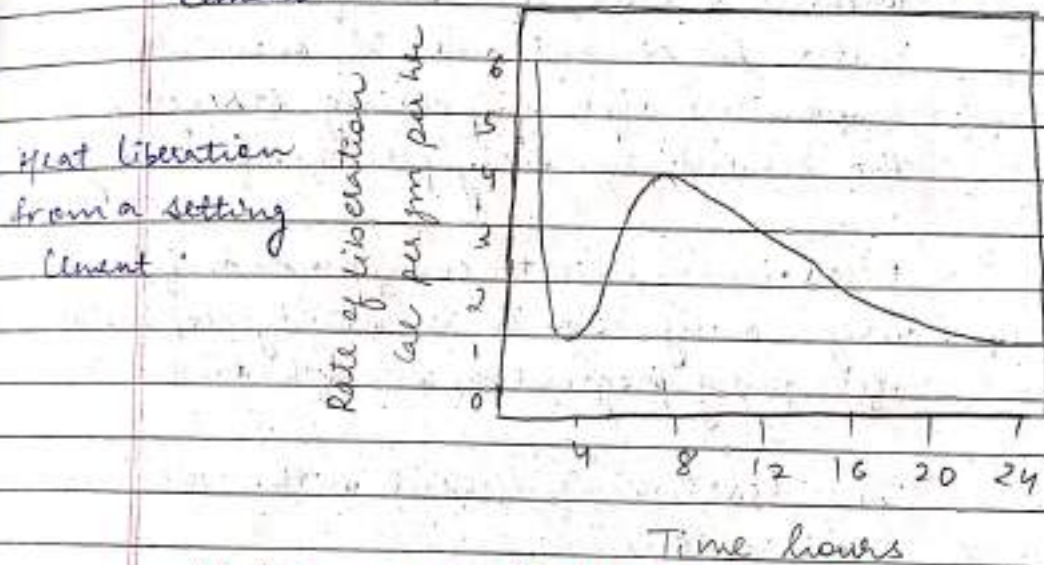 Heat liberation
from a setting
Cement
Rate of liberation
Cal per gm per hr
6
5
4
3
2
1
0
4 8 12 16 20 24
Time hours